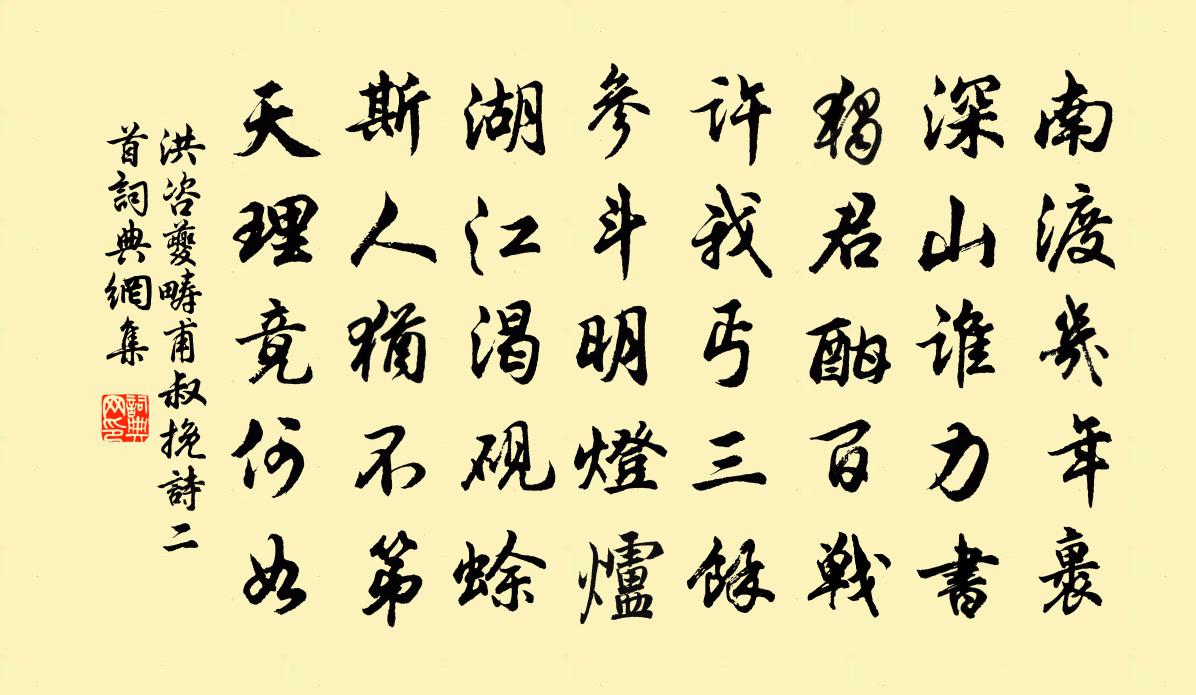 南渡幾年裏
深山誰力書
獨君酣百戰
許我丐三餘
參斗明燈爐
湖江渴硯蜍
斯人猶不第
天理竟何如
洪咨夔疇甫叔挽詩二
首詞典網集
詞典
网印